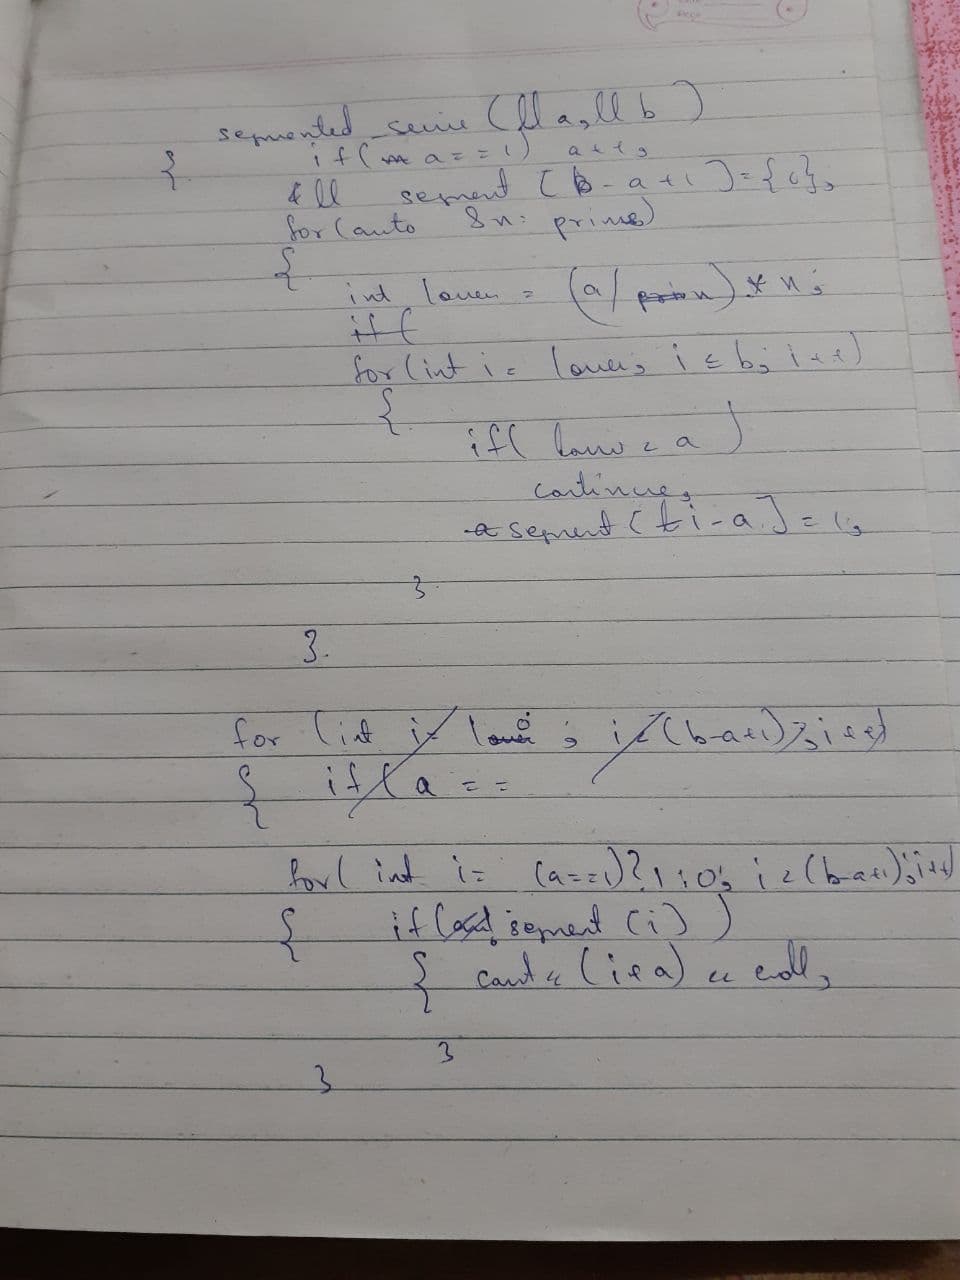 segmented_seive (ll a, ll b)
{ if( a==1) a++;
ll segment [b-a+1]={0};
for(auto &n: prime)
{
int lower = (a/n)*n;
if(
for(int i= lower; i≤b; i++)
{
if( lower < a )
continue;
segment [i-a]=1;
}
}
for (int i= 0 ; i<(b-a+1); i++)
{ if(a ==
for( int i= (a==1)?1:0; i<(b-a+1);i++)
{ if( ! segment [i] )
{ cout<< (i+a) << endl;
}
}